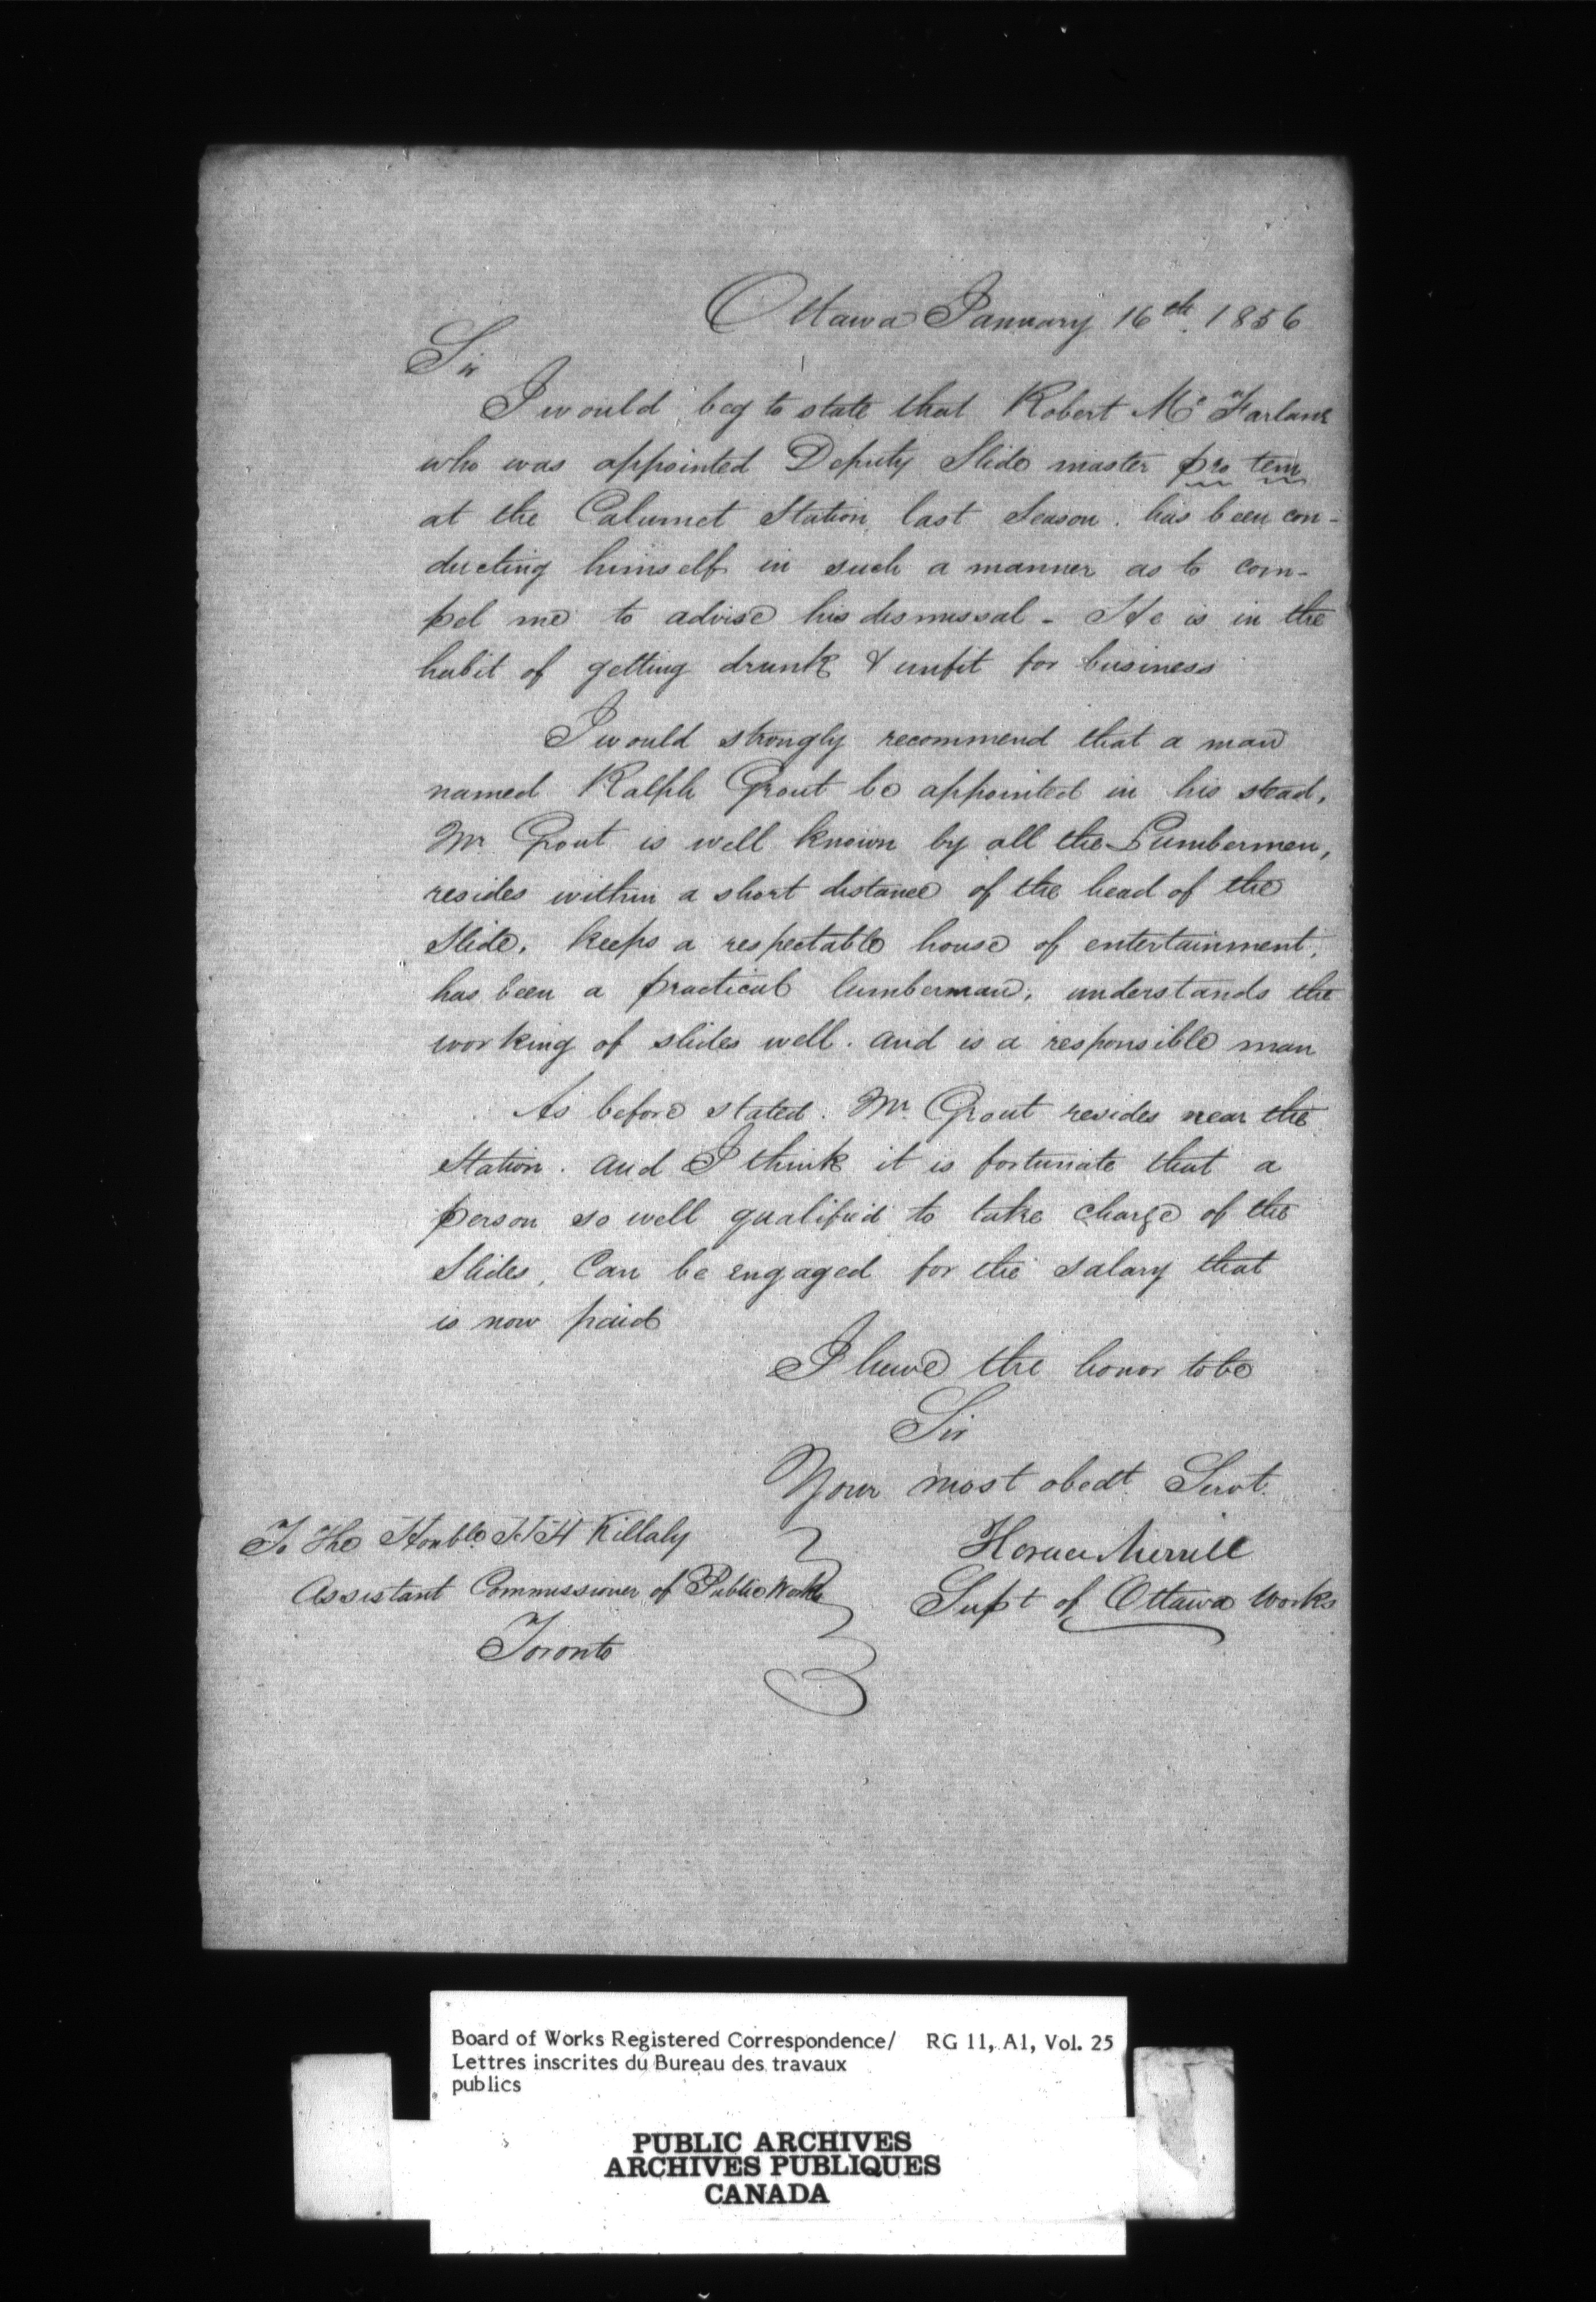 Ottawa January 16th. 1856
Sir
I would beg to state that Robert Mc Farlane
who was appointed Deputy Slide master pro tem
at the Calumet Station last Season. has been con-
ducting himself in such a manner as to com-
pel me to advise his dismissal - He is in the
habit of getting drunk & unfit for business
I would strongly recommend that a man
named Ralph Grout be appointed in his stead,
Mr. Grout is well known by all the Lumbermen,
resides within a short distance of the head of the
Slide, keeps a respectable house of entertainment,
has been a practical lumberman, understands the
working of slides well. and is a responsible man
As before stated. Mr. Grout resides near the
Station. and I think it is fortunate that a
person so well qualified to take charge of the
Slides, Can be engaged for the salary that
is now paid
I have the honor to be
Sir
Your most obedt. Servt.
Horace Merrill
Supt of Ottawa Works
To The Honble. H H Killaly
Assistant Commissioner of Public Works
Toronto
Board of Works Registered Correspondence/ RG 11, A1, Vol. 25
Lettres inscrites du Bureau des travaux
publics
PUBLIC ARCHIVES
ARCHIVES PUBLIQUES
CANADA